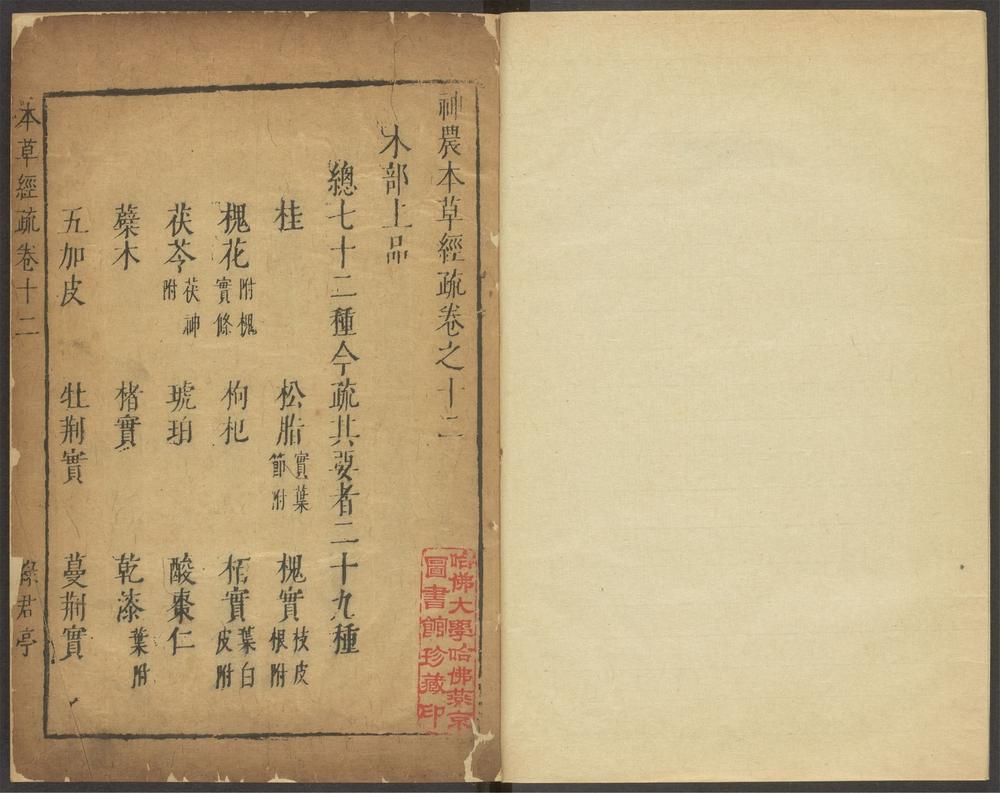 神農本草經疏卷之十二
木部上品
總七十二種今疏其要者二十九種
桂 松脂實葉節附 槐實枝皮根附
槐花附槐實條 枸杞 柏實葉白皮附
茯苓茯神附 琥珀 酸棗仁
蘗木 楮實 乾漆葉附
五加皮 牡荊實 蔓荊實
本草經疏卷十二 綠君亭
哈佛大學哈佛燕京
圖書館珍藏印